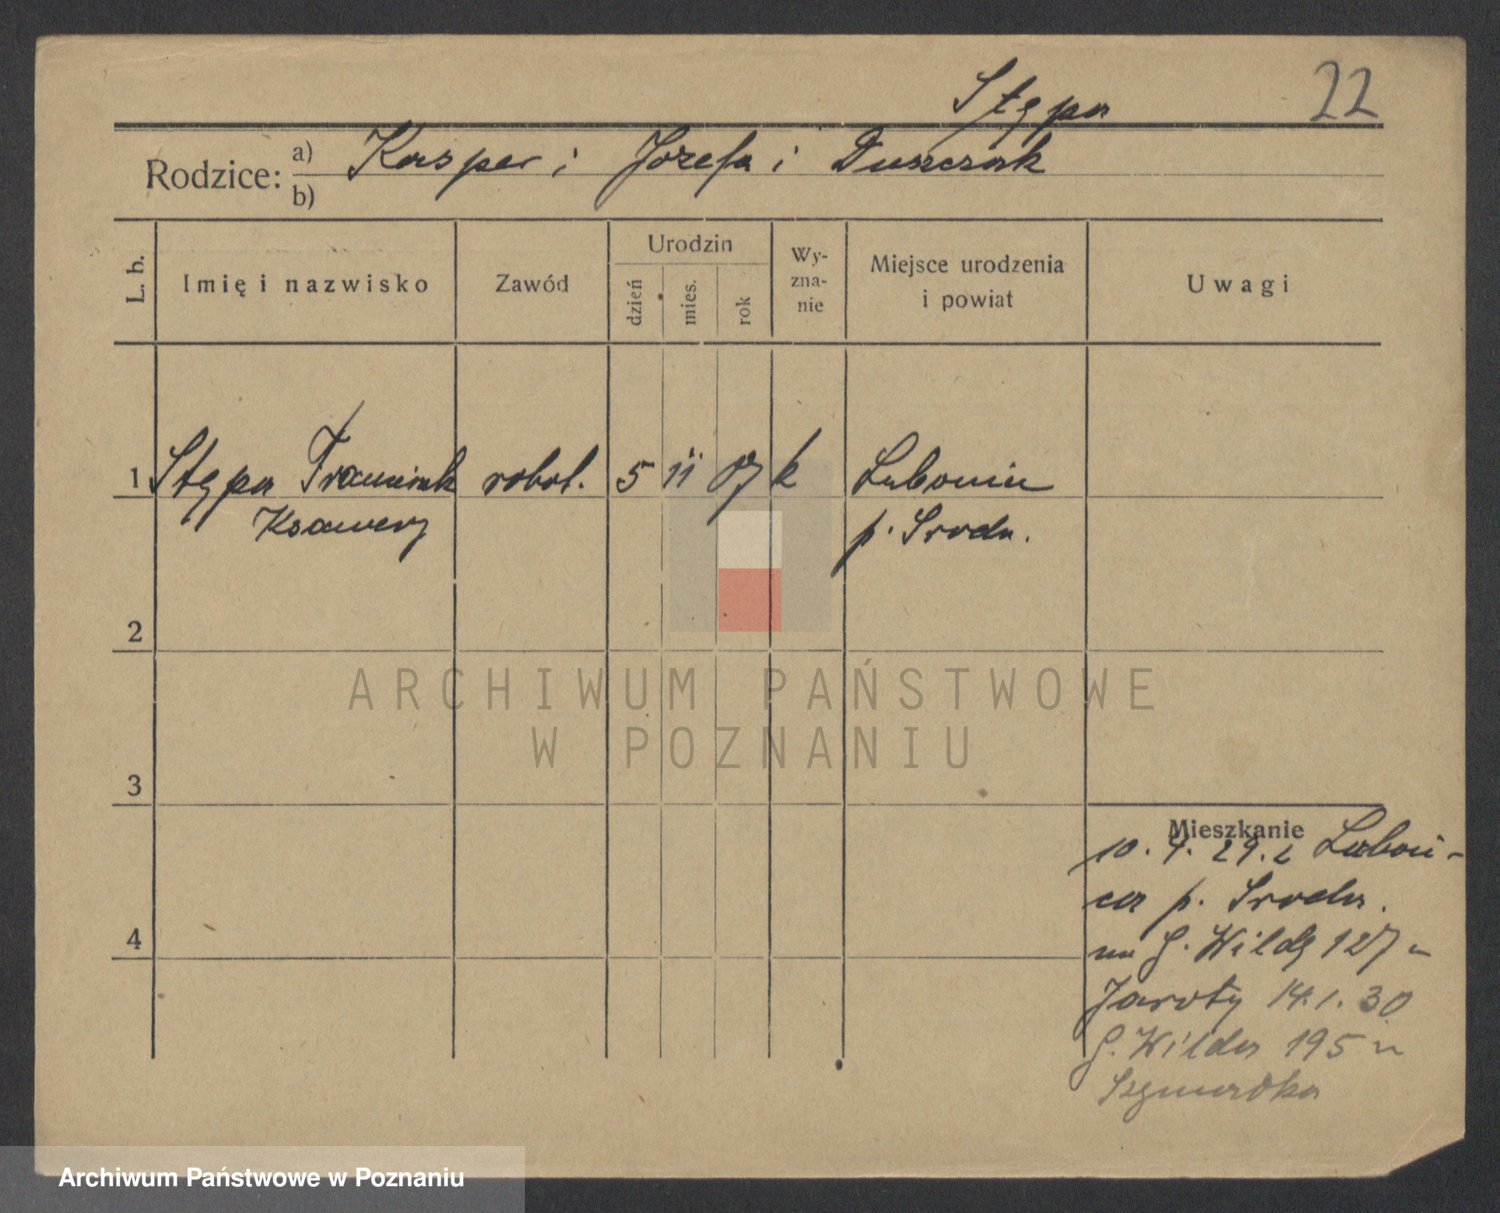 Stępa 22
Rodzice: a) Kasper i Józefa i Duszczak
b)
L. b. Imię i nazwisko Zawód Urodzin dzień mies. rok Wy-zna-nie Miejsce urodzenia i powiat Uwagi
1 Stępa Franciszek robot. 5 11 07 k
Ksawery p. Sroda.
2
ARCHIWUM PAŃSTWOWE
W POZNANIU
3
Mieszkanie
10. 4. 29. z
p. Sroda.
na G. Wildę 127 u
Jaroty 14.1.30
G. Wilda 195 u
Archiwum Państwowe w Poznaniu
4